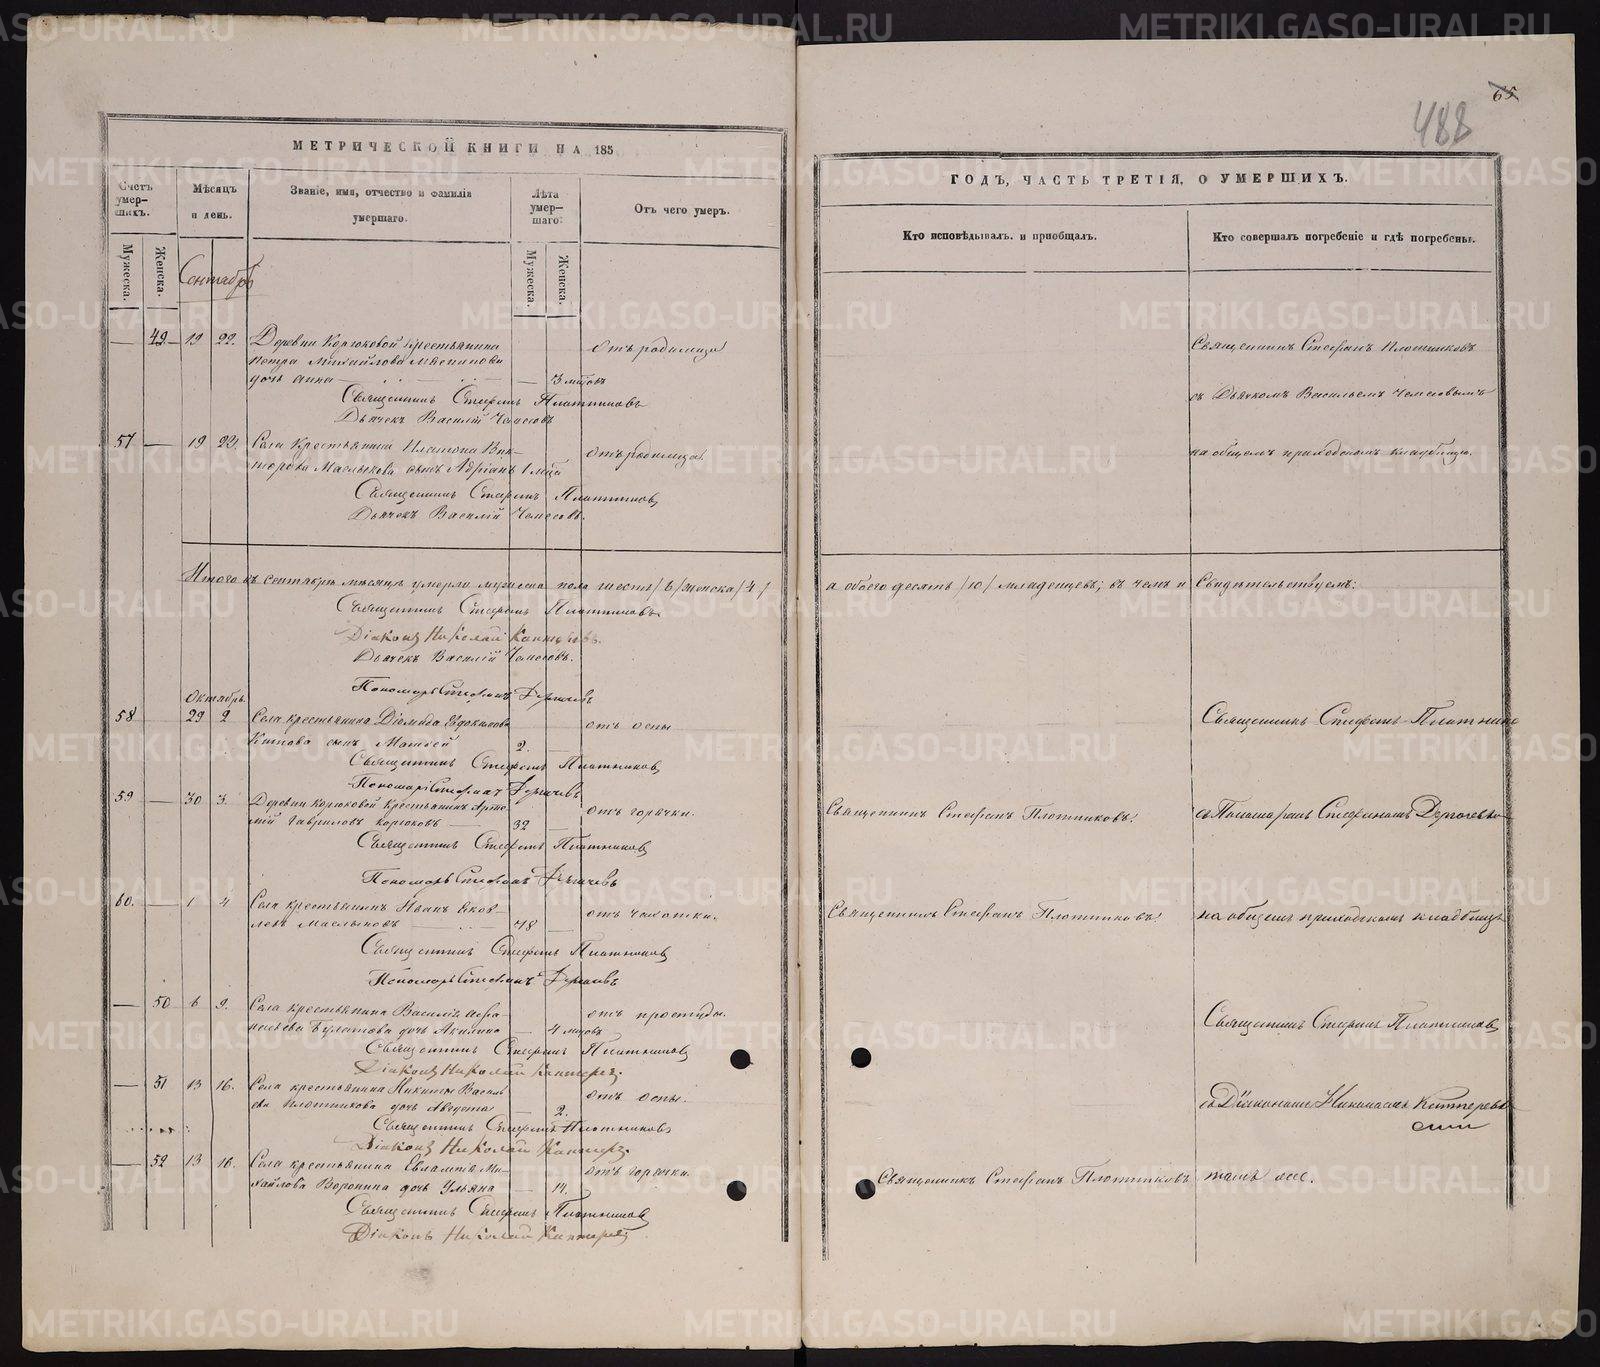 65
488
МЕТРИЧЕСКОЙ КНИГИ НА 185
ГОДЪ, ЧАСТЬ ТРЕТІЯ, О УМЕРШИХЪ.
Счетъ умер-шихъ.
Мѣсяцъ и день.
Званіе, имя, отчество и фамилія умершаго.
Лѣта умер-шаго:
Отъ чего умеръ.
Кто исповѣдывалъ и пріобщалъ.
Кто совершалъ погребеніе и гдѣ погребены.
Мужеска.
Женска.
Мужеска.
Женска.
Сентябрь
49 19 22. Деревни Корюковой крестьянина
Петра Михайлова
дочь Анна — 3 мѣсъ
отъ родимца
Священникъ Стефанъ Плотниковъ
Священникъ Стефанъ Плотниковъ
Дьячекъ Василій Чемесовъ
съ Дьячкомъ Васильемъ Чемесовымъ
57 — 19 22. Села крестьянина Платона Вик-
торова Маслыкова сынъ Адріанъ 1 мѣся
отъ родимца.
на общемъ приходскомъ кладбищѣ.
Священникъ Стефанъ Плотниковъ
Дьячекъ Василій Чемесовъ.
Итого въ сентябрѣ мѣсяцѣ умерло мужеска пола шесть /6/ женска /4/
а обоего десять /10/ младенцевъ; въ чемъ и Свидѣтельствуемъ:
Священникъ Стефанъ Плотниковъ
Діаконъ Николай
Дьячекъ Василій Чемесовъ.
Пономарь Стефанъ Дергачевъ
Октябрь
58 29 2 Села крестьянина Діомида Евдокимова
Китова сынъ Матвей 2.
отъ оспы
Священникъ Стефанъ Плотнико
Священникъ Стефанъ Плотниковъ
Пономарь Стефанъ Дергачевъ
59 — 30 3. Деревни Корюковой крестьянинъ Арте-
мій Гавриловъ Корюковъ — 32
отъ горячки.
Священникъ Стефанъ Плотниковъ.
съ Пономаремъ Стефаномъ Дергачевы
Священникъ Стефанъ Плотниковъ
Пономарь Стефанъ Дергачевъ
60. — 1 4 Села крестьянинъ Иванъ Яков-
левъ Маслыковъ — 48
отъ чахотки.
Священникъ Стефанъ Плотниковъ.
на общемъ приходскомъ кладбищѣ
Священникъ Стефанъ Плотниковъ
Пономарь Стефанъ Дергачевъ
— 50 6 9. Села крестьянина Василія Афа-
насьева Булатова дочь Акилина — 4 мѣсцъ
отъ простуды.
Священникъ Стефанъ Плотниковъ
Священникъ Стефанъ Плотниковъ
Діаконъ Николай
— 51 13 16. Села крестьянина Никиты Василь
ева Плотникова дочь Августа — 2.
отъ оспы.
съ Діакономъ Николаемъ
Священникъ Стефанъ Плотниковъ
Діаконъ Николай
— 52 13 16. Села крестьянина Евлампія Ми-
хайлова Воронина дочь Ульяна — 14.
отъ горячки.
Священникъ Стефанъ Плотниковъ
тамъ же.
Священникъ Стефанъ Плотниковъ
Діаконъ Николай
METRIKI.GASO-URAL.RU